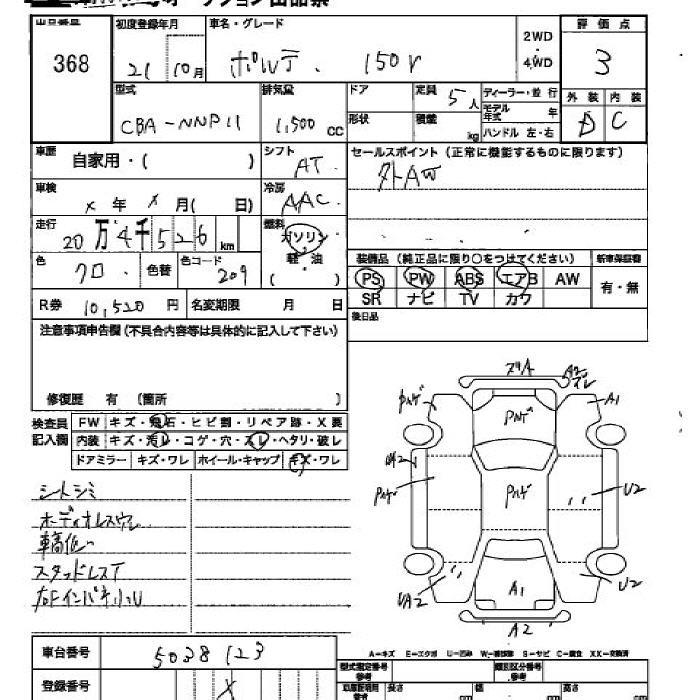 出品番号 初度登録年月 車名・グレード 2WD 評価点
368 21 10月 ポルテ. 150r 4WD 3
型式 排気量 ドア 定員 5人 ディーラー・並行 外装 内装
モデル年式 年
CBA-NNP11 1,500 CC 形状 積載 kg ハンドル 左・右 D C
車歴 自家用・( ) シフト AT セールスポイント (正常に機能するものに限ります)
外AW
車検 × 年 × 月( 日) 冷房 AAC
走行 20万4千526 km 燃料 ガソリン 軽・油 ( )
色 クロ. 色替 色コード 209
装備品 (純正品に限り○をつけてください) 新車保証書
PS PW ABS エアB AW 有・無
SR ナビ TV カワ
R券 10,520 円 名変期限 月 日 後日品
注意事項申告欄 (不具合内容等は具体的に記入して下さい)
修復歴 有 (箇所 )
検査員記入欄 FW キズ・飛石・ヒビ割・リペア跡・X要
内装 キズ・汚レ・コゲ・穴・スレ・ヘタリ・破レ
ドアミラー キズ・ワレ ホイール・キャップ キズ・ワレ
シートシミ
ボディオレスウレ
車高低い
スタッドレスT
右Fインパネ小U
ズリA A2 ズレ
Pハゲ Pハゲ A1
Pハゲ Pハゲ U2
UA2 A1 U2
A2
A-キズ E-エクボ U-凹み W-補修跡 S-サビ C-腐食 XX-交換済
車台番号 5038123
登録番号 X
型式指定番号 参考 類別区分番号 参考
車庫証明用 参考 長さ cm 幅 cm 高さ cm